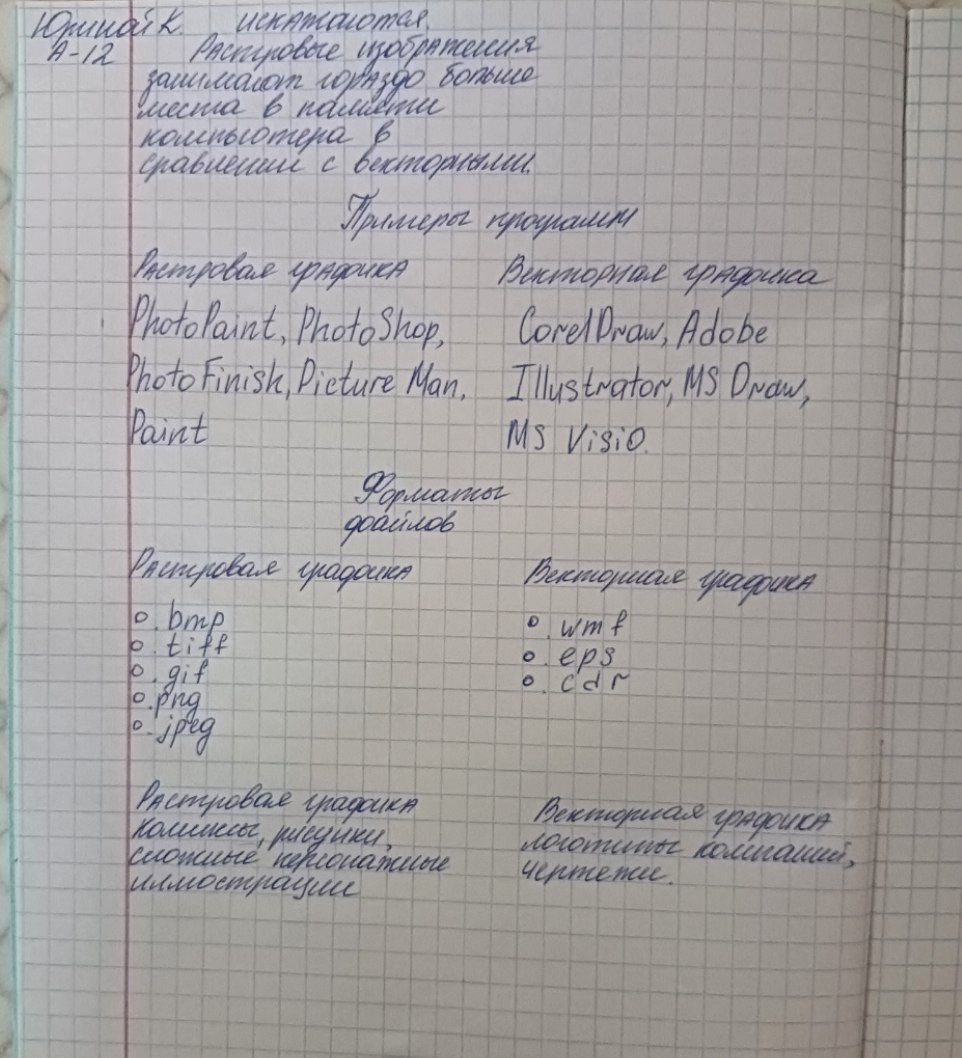 Юриной К. искажаются.
А-12 Растровые изображения
занимают гораздо больше
места в памяти
компьютера в
сравнении с векторными.
Примеры программ
Растровая графика Векторная графика
PhotoPaint, PhotoShop, CorelDraw, Adobe
PhotoFinish, Picture Man, Illustrator, MS Draw,
Paint MS Visio.
Форматы
файлов
Растровая графика Векторная графика
.bmp .wmf
.tiff .eps
.gif .cdr
.png
.jpeg
Растровая графика Векторная графика
Комиксы, рисунки, логотипы компаний,
сложные персонажные чертежи.
иллюстрации